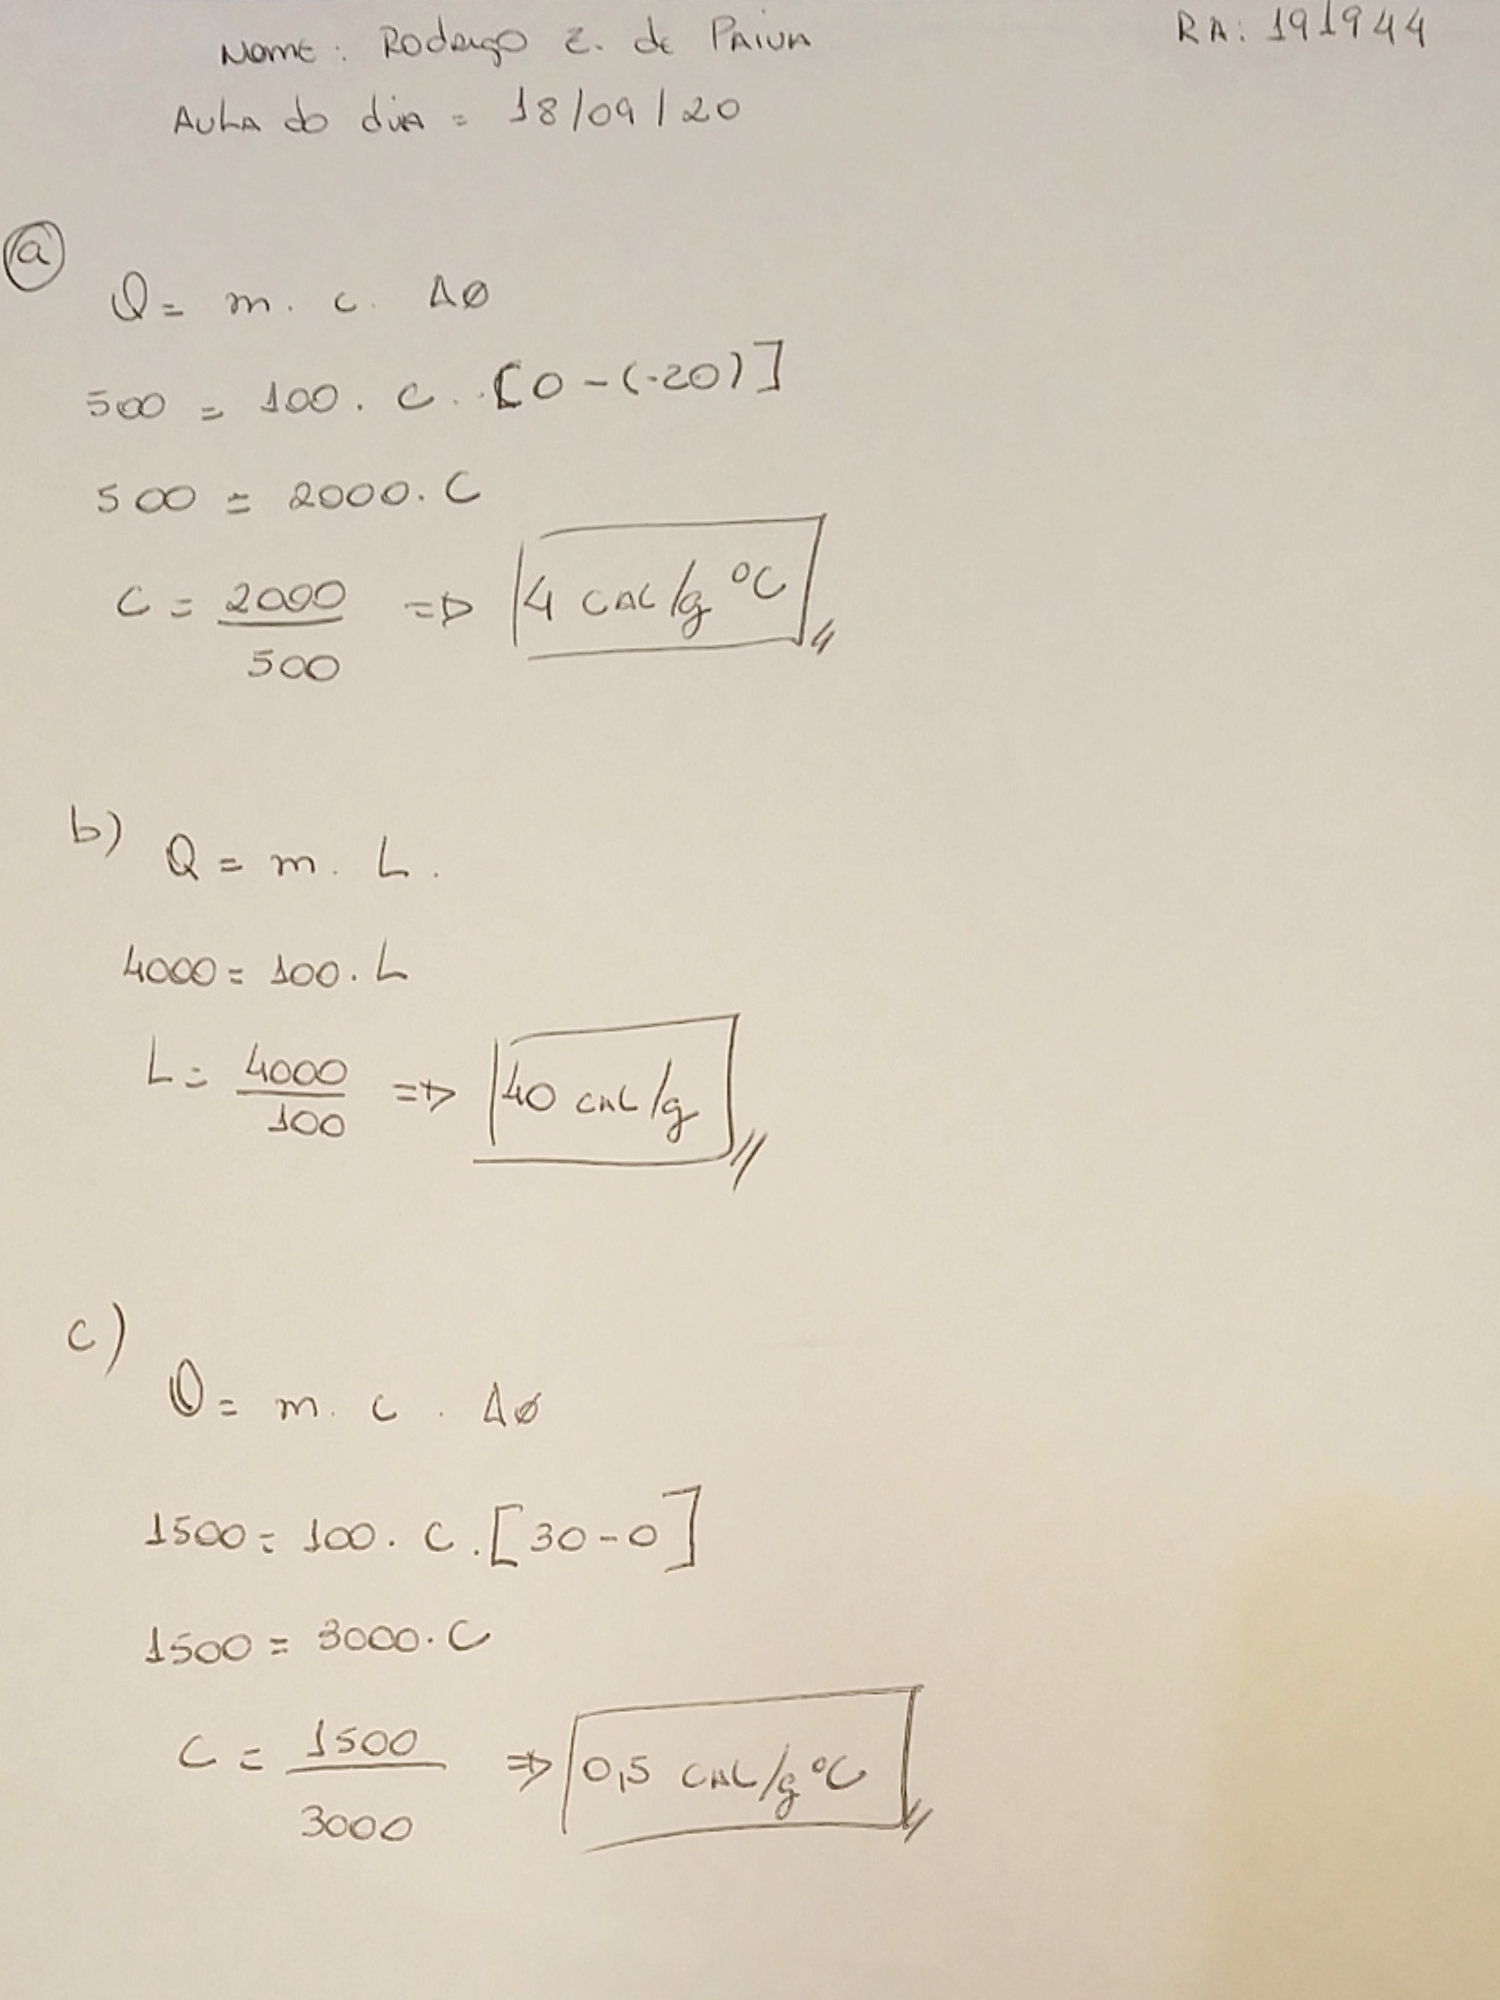 Nome: Rodrigo Z. de Paiva RA: 191944
Aula do dia = 18/09/20
a
Q = m. c. Δø
500 = 100. c. [0-(-20)]
500 = 2000. C
C = 2000/500 => 4 cal/g °C
b) Q = m. L.
4000 = 100. L
L = 4000/100 => 40 cal/g
c) Q = m. c. Δø
1500 = 100. C. [30-0]
1500 = 3000. C
C = 1500/3000 => 0,5 cal/g °C